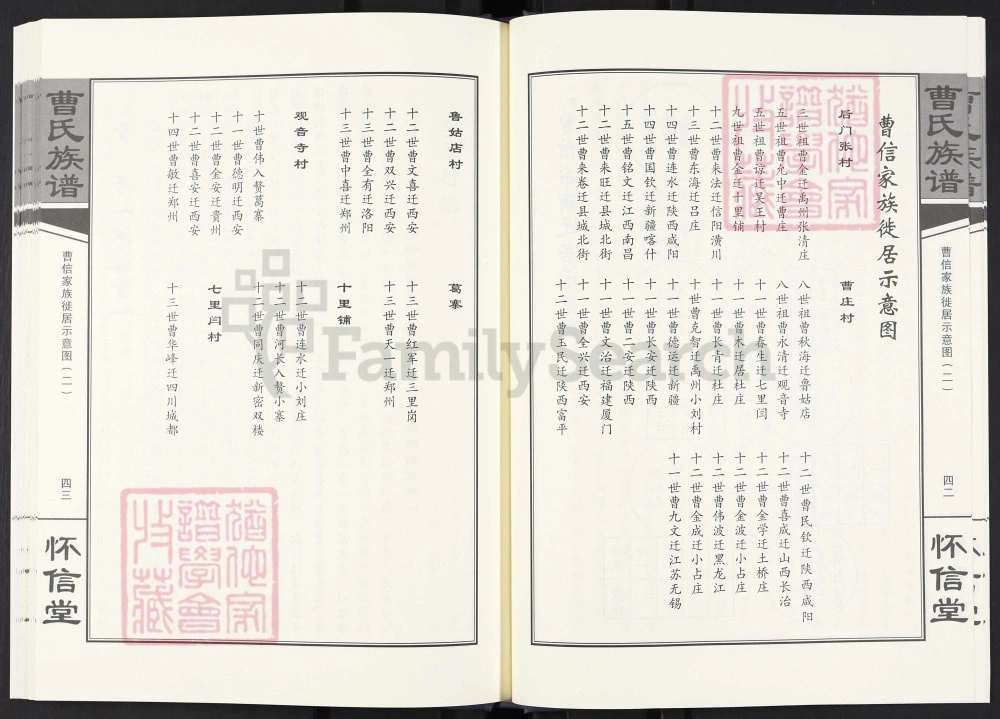 曹氏族谱
曹信家族徙居示意图（二）
四二
怀信堂
曹信家族徙居示意图
后门张村
三世祖曹金迁禹州张清庄
五世祖曹允中迁曹庄
五世祖曹谅迁吴王村
九世祖曹金迁十里铺
十二世曹来法迁信阳潢川
十三世曹东海迁吕庄
十四世曹连水迁陕西咸阳
十四世曹国钦迁新疆喀什
十五世曹铭文迁江西南昌
十二世曹来旺迁县城北街
十二世曹来卷迁县城北街
曹庄村
八世祖曹秋海迁鲁姑店
八世祖曹永清迁观音寺
十一世曹春生迁七里闫
十一世曹木迁居杜庄
十一世曹长青迁杜庄
十世曹克智迁禹州小刘村
十一世曹德运迁新疆
十一世曹长安迁陕西
十一世曹二安迁陕西
十一世曹文治迁福建厦门
十一世曹全兴迁西安
十二世曹玉民迁陕西富平
十二世曹民钦迁陕西咸阳
十二世曹喜成迁山西长治
十二世曹金学迁土桥庄
十二世曹金波迁小占庄
十二世曹伟波迁黑龙江
十二世曹金成迁小占庄
十一世曹九文迁江苏无锡
鲁姑店村
十二世曹文喜迁西安
十二世曹双兴迁西安
十三世曹全有迁洛阳
十三世曹中喜迁郑州
观音寺村
十世曹伟入赘葛寨
十一世曹德明迁西安
十二世曹金安迁贵州
十二世曹喜安迁西安
十四世曹敏迁郑州
葛寨
十三世曹红军迁三里岗
十三世曹天一迁郑州
十里铺
十二世曹连水迁小刘庄
十二世曹河长入赘小寨
十二世曹同庆迁新密双楼
七里闫村
十三世曹华峰迁四川城都
曹氏族谱
曹信家族徙居示意图（二）
四三
怀信堂
FamilySearch